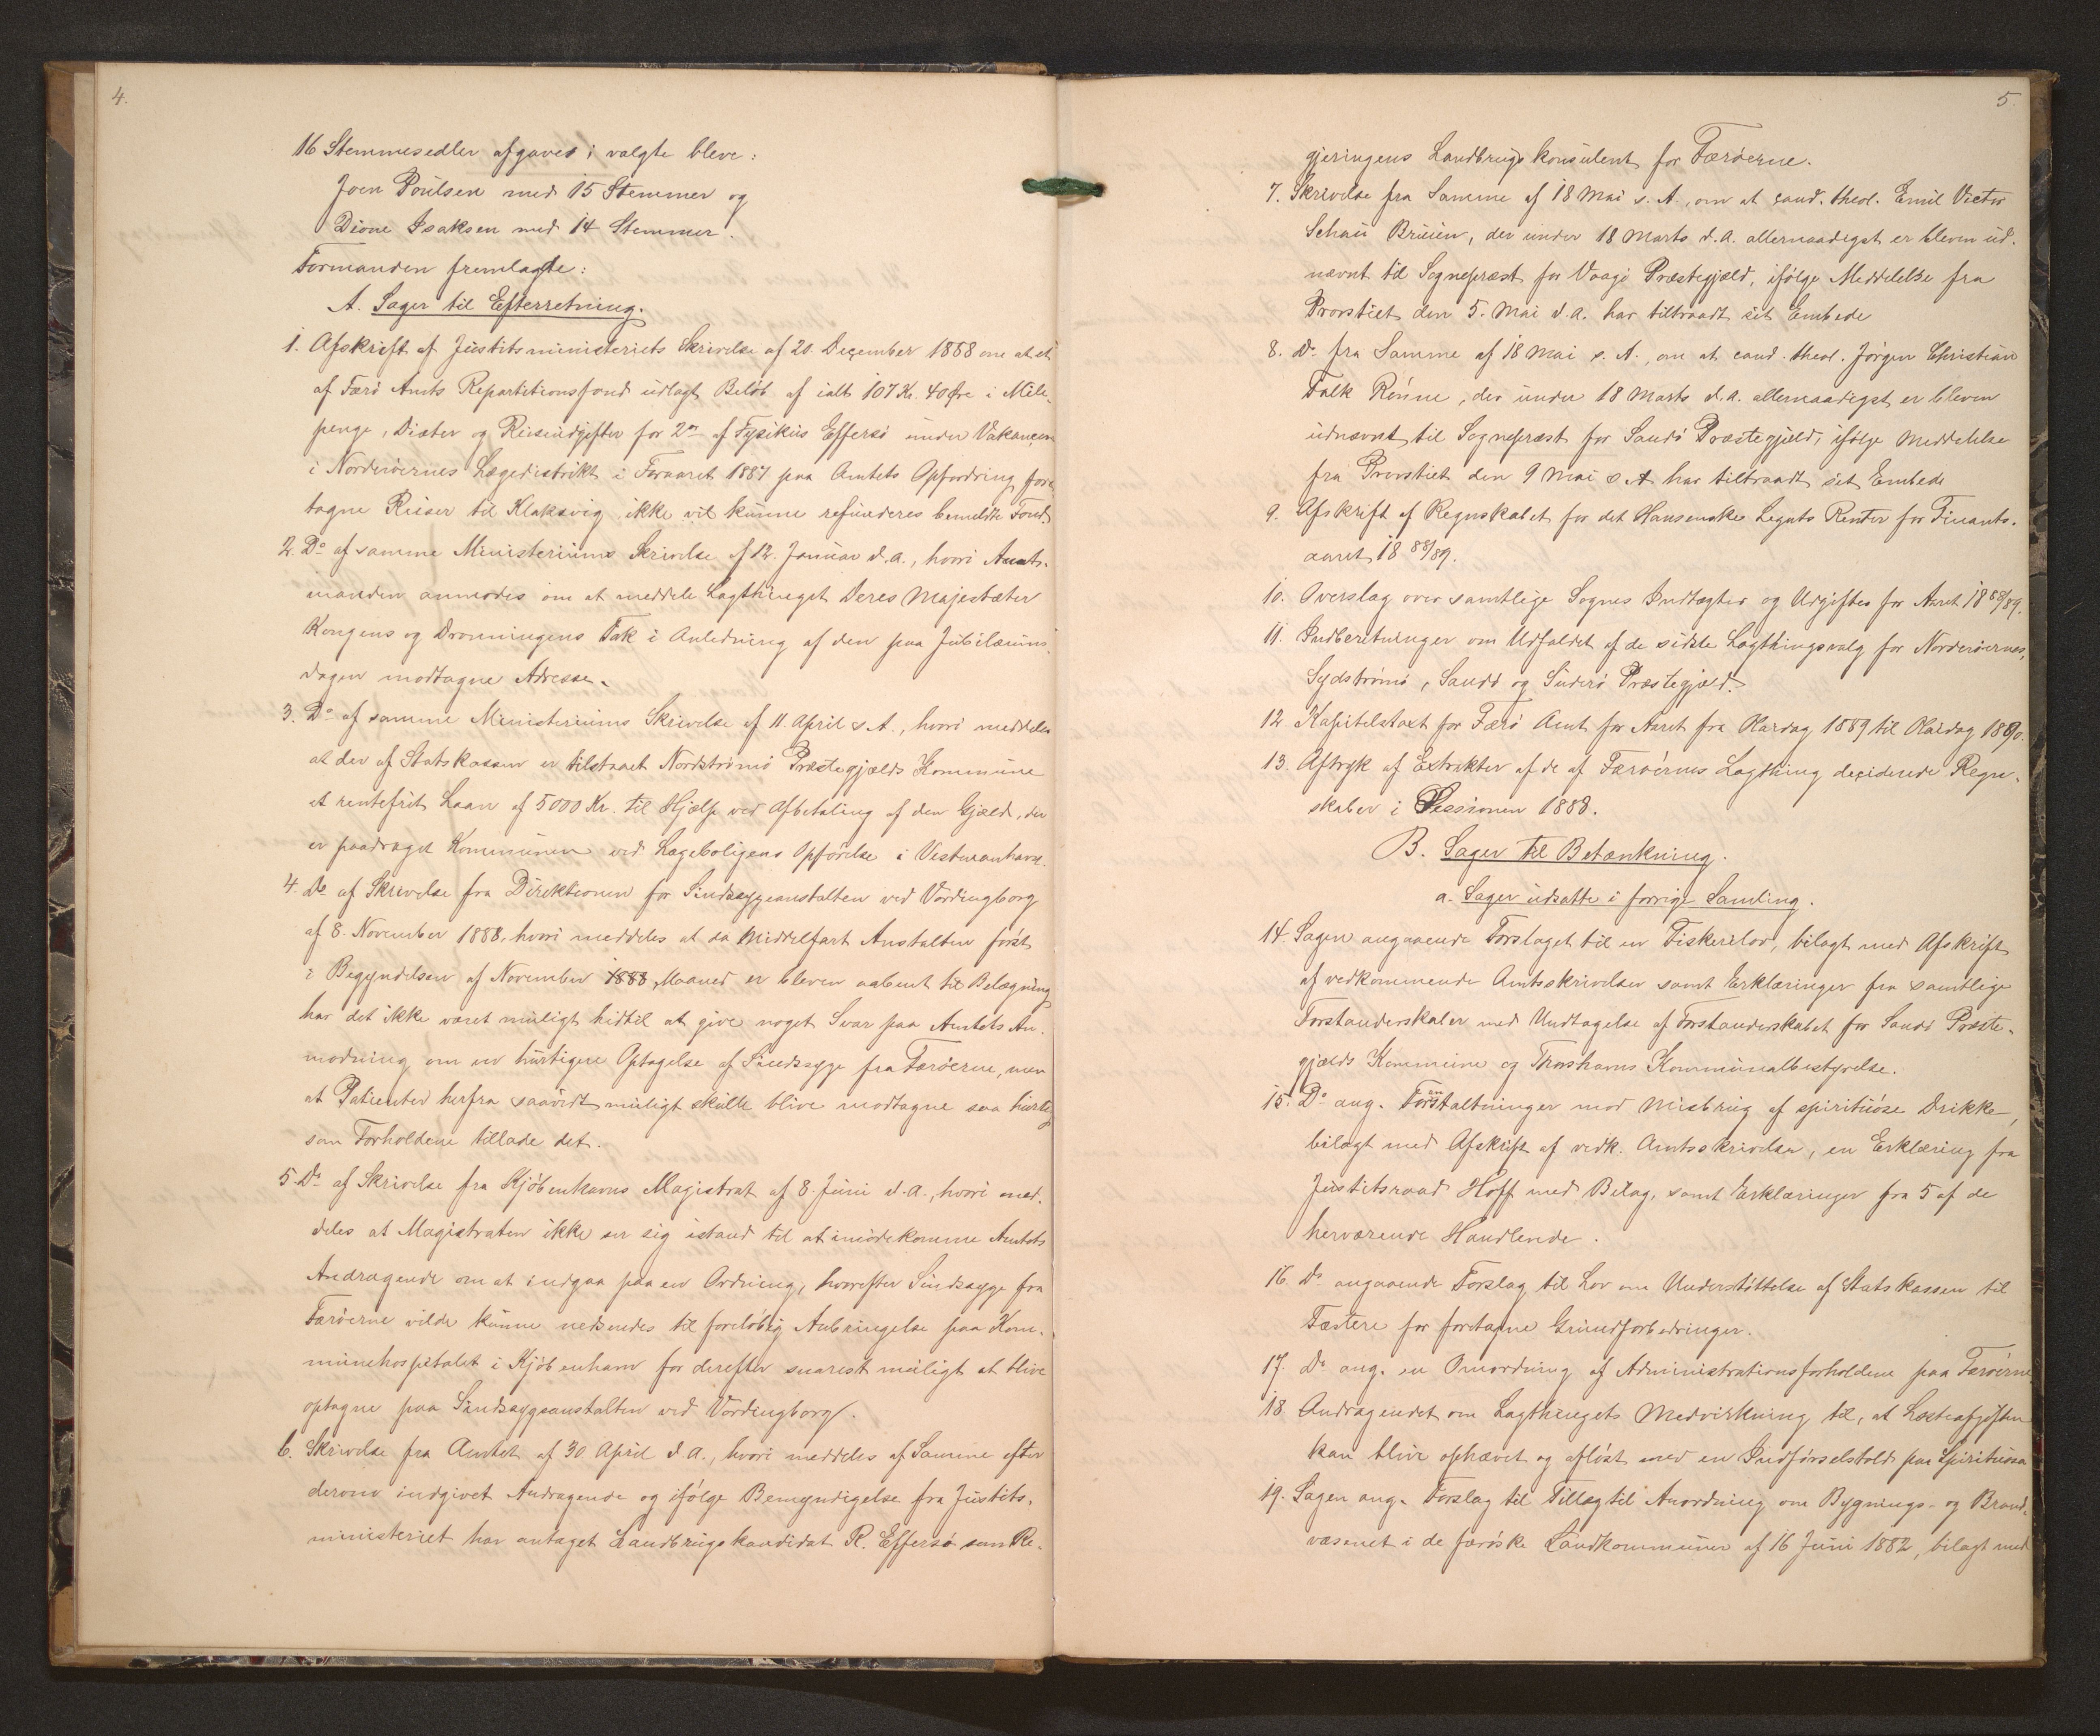 4.
16 Stemmesedler afgaves; valgte bleve:
Joen Poulsen med 15 Stemmer og
Dione Isaksen med 14 Stemmer.
Formanden fremlagde:
A. Sager til Efterretning.
1. Afskrift af Justitsministeriets Skrivelse af 20. December 1888 om at et
af Færø Amts Repartitionsfond udlagt Beløb af ialt 107 Kr. 40 Øre i Mile-
penge, Diæter og Reiseudgifter for 2de af Fysikus Effersø under Vakancen
i Norderøernes Lægedistrikt i Foraaret 1887 paa Amtets Opfordring fore-
tagne Reiser til Klaksvig ikke vil kunne refunderes bemeldte Fond.
2. Do af samme Ministeriums Skrivelse af 12. Januar d.A., hvori Amt-
manden anmodes om at meddele Lagthinget Deres Majestæter
Kongens og Dronningens Tak i Anledning af den paa Jubilæums-
dagen modtagne Adresse.
3. Do af samme Ministeriums Skrivelse af 11. April s.A., hvori meddeles
at der af Statskassen er tilstaaet Nordstrømø Præstegjælds Kommune
et rentefrit Laan af 5000 Kr. til Hjælp ved Afbetaling af den Gjæld, der
er paadraget Kommunen ved Lægeboligens Opførelse i Vestmanhavn.
4. Do af Skrivelse fra Direktionen for Sindssygeanstalten ved Vordingborg
af 8. November 1888, hvori meddeles at da Middelfart Anstalten først
i Begyndelsen af November 1888 Maaned er bleven aabent til Belægning
har det ikke været muligt hidtil at give noget Svar paa Amtets An-
modning om en hurtigere Optagelse af Sindssyge fra Færøerne, men
at Patienter herfra saavidt muligt skulle blive modtagne saa hurtig
som Forholdene tillade det.
5. Do af Skrivelse fra Kjøbenhavns Magistrat af 8. Juni d.A., hvori med-
deles at Magistraten ikke ser sig istand til at imødekomme Amtets
Andragende om at indgaa paa en Ordning, hvorefter Sindssyge fra
Færøerne vilde kunne nedsendes til foreløbig Anbringelse paa Kom-
munehospitalet i Kjøbenhavn for derefter snarest muligt at blive
optagne paa Sindssygeanstalten ved Vordingborg.
6. Skrivelse fra Amtet af 30. April d.A., hvori meddeles af Samme efter
derom indgivet Andragende og ifølge Bemyndigelse fra Justits-
ministeriet har antaget Landbrugskandidat R. Effersø som Re-
5.
gjeringens Landbrugskonsulent for Færøerne.
7. Skrivelse fra Samme af 18 Mai s.A., om at cand. theol. Emil Victor
Schau Bruun, der under 18 Marts d.A. allernaadigst er bleven ud-
nævnt til Sognepræst for Vaagø Præstegjæld, ifølge Meddelelse fra
Provstiet den 5. Mai d.A. har tiltraadt sit Embede
8. Do fra Samme af 18 Mai s.A., om at cand. theol. Jørgen Christian
Falk Rønne, der under 18 Marts d.A. allernaadigst er bleven
udnævnt til Sognepræst for Sandø Præstegjæld, ifølge Meddelelse
fra Provstiet den 9 Mai s.A. har tiltraadt sit Embede
9. Afskrift af Regnskabet for det Hansenske Legats Renter for Finants-
aaret 1888/89.
10. Overslag over samtlige Sognes Indtægter og Udgifter for Aaret 1888/89.
11. Indberetninger om Udfaldet af de sidste Lagthingsvalg for Norderøernes,
Sydstrømø, Sandø og Suderø Præstegjæld.
12. Kapitelstaxt for Færø Amt for Aaret fra Olaidag 1889 til Olaidag 1890.
13. Aftryk af Extrakter af de af Færøernes Lagthing deciderede Regn-
skaber i Sessionen 1888.
B. Sager til Betænkning.
a. Sager udsatte i forrige Samling.
14. Sagen angaaende Forslaget til en Fiskerilov, bilagt med Afskrift
af vedkommende Amtsskrivelser samt Erklæringer fra samtlige
Forstanderskaber med Undtagelse af Forstanderskabet for Sandø Præste-
gjælds Kommune og Thorshavns Kommunalbestyrelse.
15. Do ang. Foranstaltninger mod Misbrug af spirituøse Drikke,
bilagt med Afskrift af vedk. Amtsskrivelser, en Erklæring fra
Justitsraad Hoff med Bilag, samt Erklæringer fra 5 af de
herværende Handlende.
16. Do angaaende Forslag til Lov om Understøttelse af Statskassen til
Fæstere for foretagne Grundforbedringer.
17. Do ang. en Omordning af Administrationsforholdene paa Færøerne
18. Andragendet om Lagthingets Medvirkning til, at Læsteafgiften
kan blive ophævet og afløst med en Indførselstold paa Spirituosa
19. Sagen ang. Forslag til Tillæg til Anordning om Bygnings- og Brand-
væsenet i de færøske Landkommuner af 16 Juni 1882, bilagt med